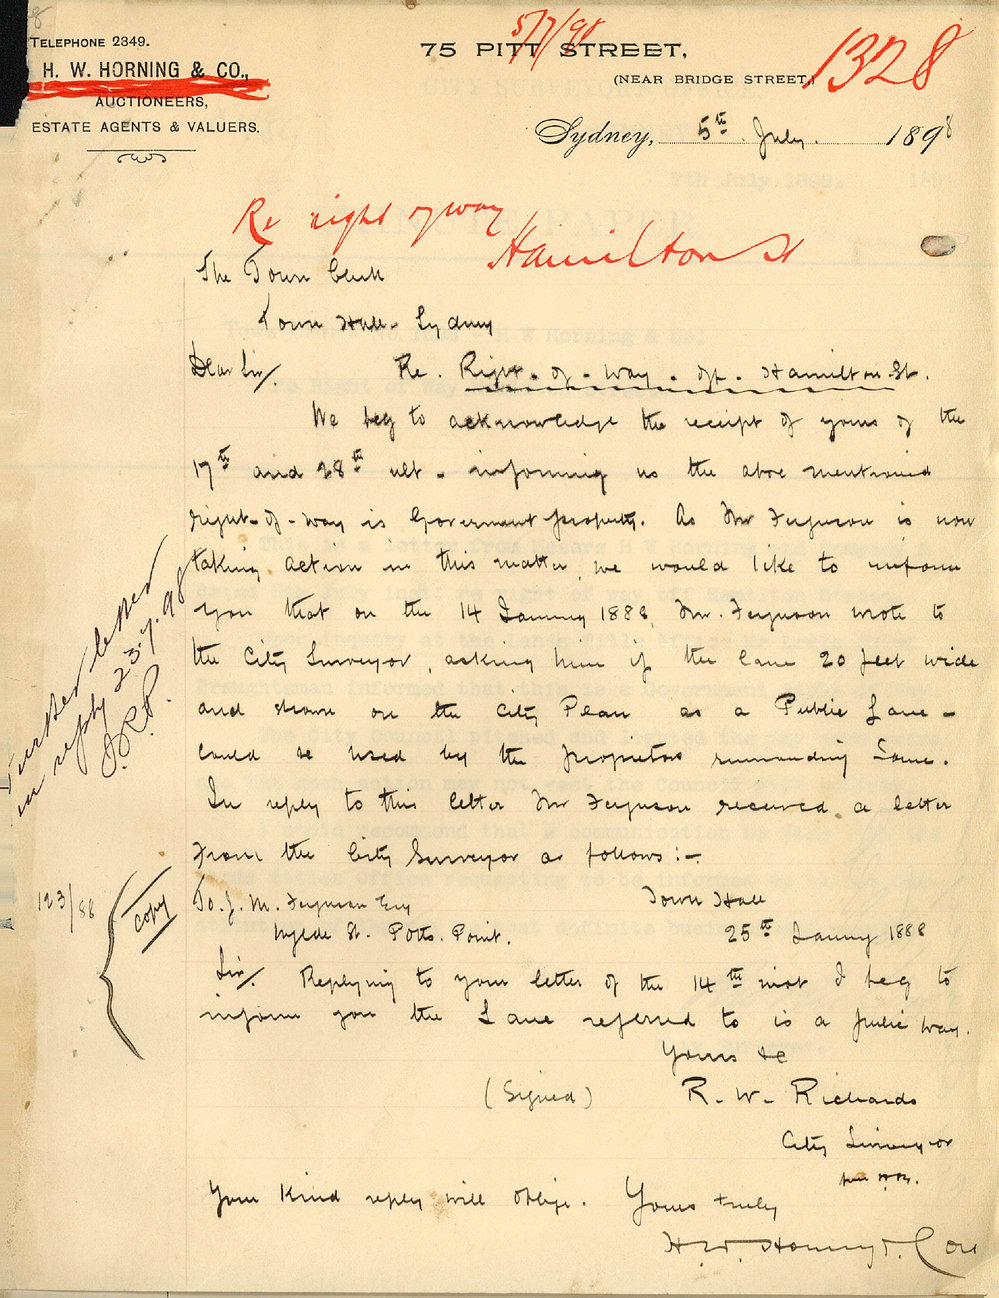 TELEPHONE 2349.
H. W. HORNING & CO.,
AUCTIONEERS,
ESTATE AGENTS & VALUERS.
5/7/98
75 PITT STREET,
(NEAR BRIDGE STREET,)
1328
Sydney, 5th July. 1898
Re right of way
Hamilton St
The Town Clerk
Town Hall - Sydney
Dear Sir/ Re. Right-of-Way. off. Hamilton St.
We beg to acknowledge the receipt of yours of the
17th and 28th ult - informing us the above mentioned
right-of-way is Government property. As Mr Ferguson is now
taking action in this matter, we would like to inform
you that on the 14 January 1888, Mr. Ferguson wrote to
the City Surveyor, asking him if the lane 20 feet wide
and shown on the City Plan as a Public Lane -
could be used by the proprietors surrounding same.
In reply to this letter Mr Ferguson received a letter
from the City Surveyor as follows:-
Further letter
in reply 23.7.98
J.R.P.
123/88
Copy
To. J. M. Ferguson Esq Town Hall
Wylde St. Potts. Point. 25th January 1888
Sir/. Replying to your letter of the 14th inst I beg to
inform you the Lane referred to is a public way.
Yours &c
(Signed) R. W. Richards
City Surveyor
Your kind reply will oblige. Yours truly
H. W. Horning & Co